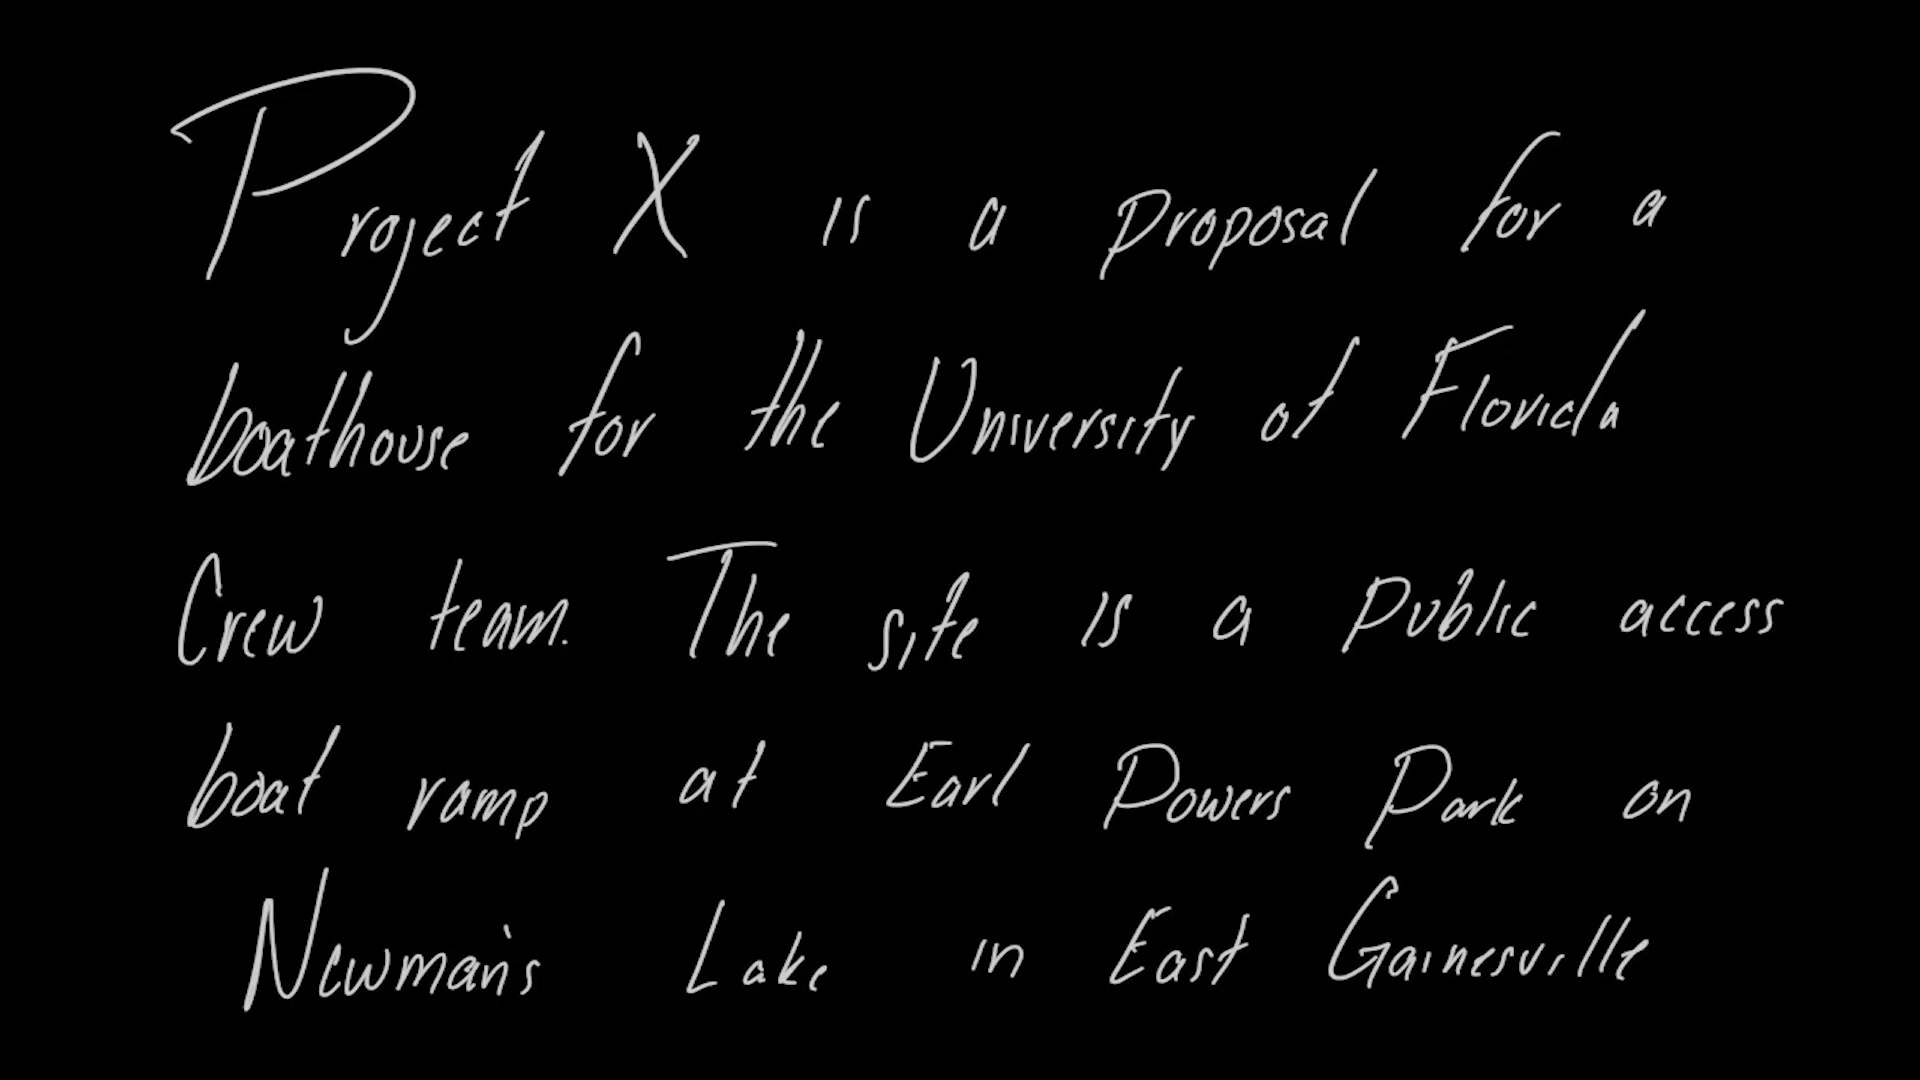 Project X is a proposal for a
boathouse for the University of Florida
Crew team. The site is a public access
boat ramp at Earl Powers Park on
Newman's Lake in East Gainesville